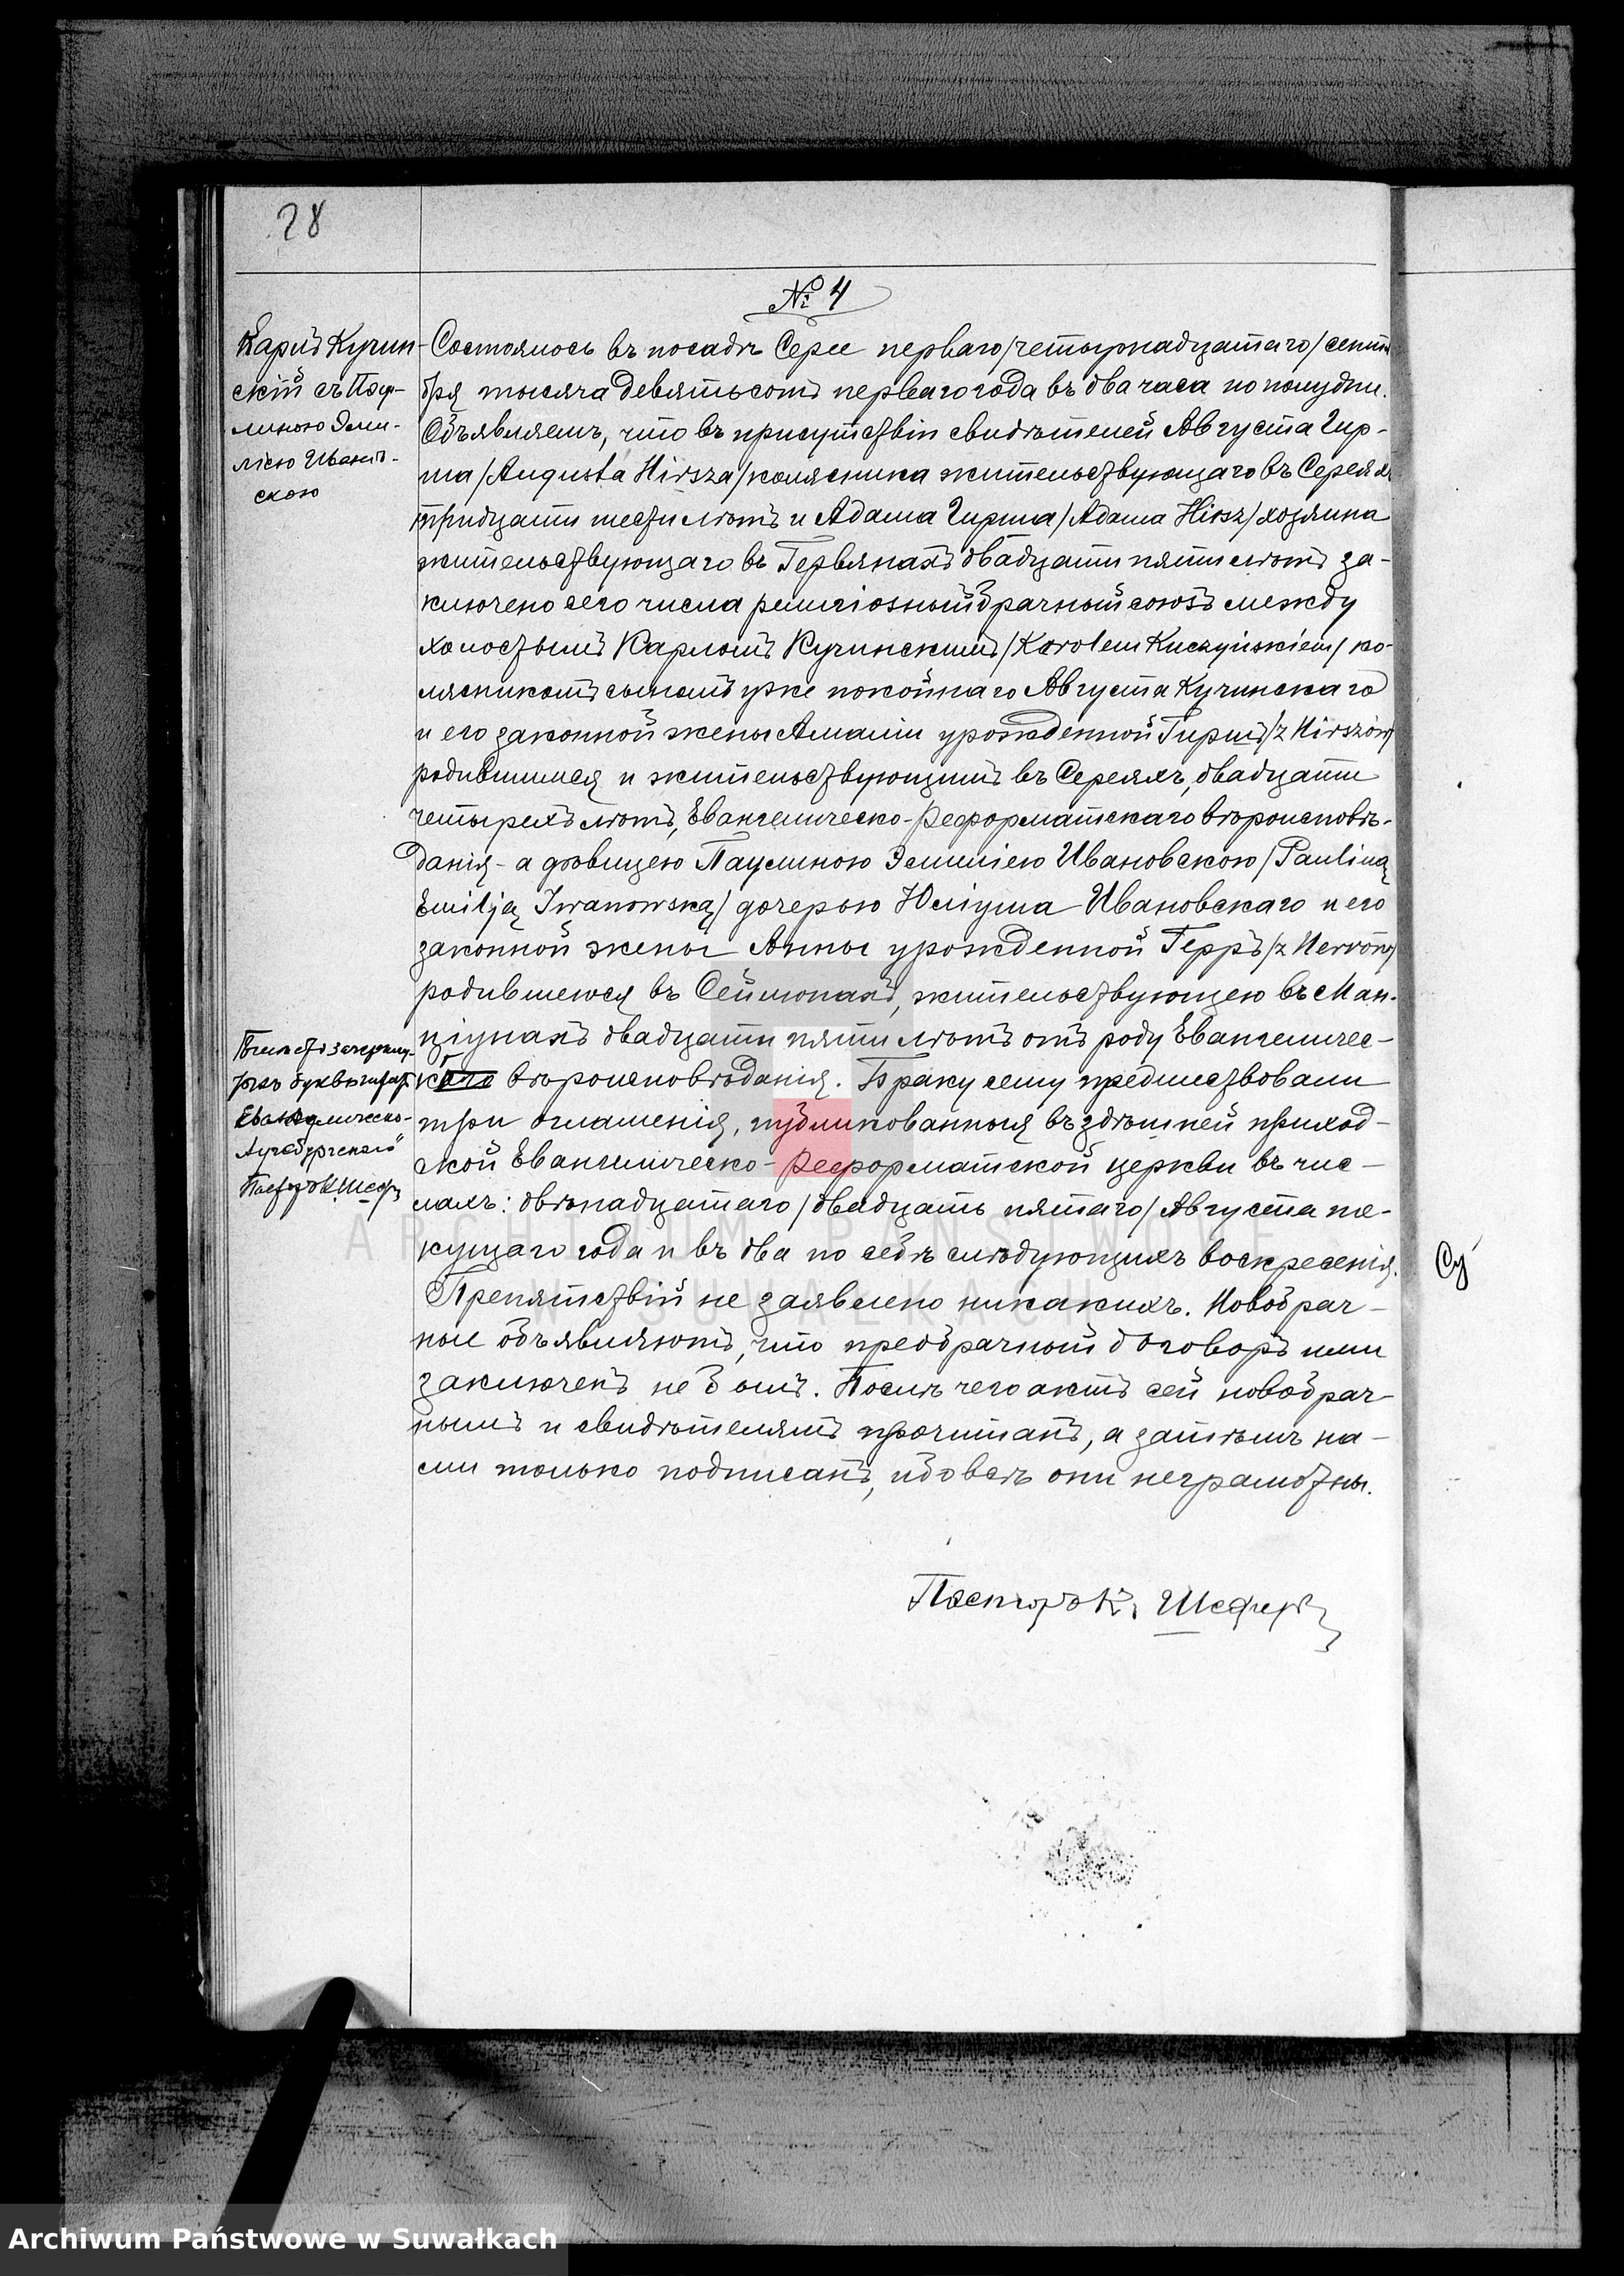 28
№ 4
Карлъ Кучин-
скій съ Пау-
линою Эми-
ліею Иванов-
скою
Состоялось въ посадѣ Серее перваго /четырнадцатаго/ сентя-
бря тысяча девятьсотъ перваго года въ два часа по полудни.
Объявляемъ, что въ присутствіи свидѣтелей Августа Гир-
ша /Augusta Hirsza/ колясника жительствующаго въ Сереяхъ
тридцати шести лѣтъ и Адама Гирша /Adama Hirsz/ хозяина
жительствующаго въ Гервянахъ двадцати пяти лѣтъ за-
ключено сего числа религіозный брачный союзъ между
холостымъ Карломъ Кучинскимъ /Karolem Kuczyńskiem/ ко-
лясникомъ сыномъ уже покойнаго Августа Кучинскаго
и его законной жены Амаліи урожденной Гиршъ /z Hirszów/
родившимся и жительствующимъ въ Сереяхъ, двадцати
четырехъ лѣтъ, Евангелическо-Реформатскаго вѣроисповѣ-
данія - а дѣвицею Паулиною Эмиліею Ивановскою /Pauliną
Emilją Iwanowską/ дочерью Юліуша Ивановскаго и его
законной жены Анны урожденной Герръ /z Herrów/
родившеюся въ Сейлюнахъ, жительствующею въ Ман-
ціунахъ двадцати пяти лѣтъ отъ роду Евангеличес-
каго вѣроисповѣданія. Браку сему предшествовали
три оглашенія, публикованныя въ здѣшней приход-
ской Евангелическо-Реформатской церкви въ чис-
лахъ: двѣнадцатаго /двадцать пятаго/ Августа те-
кущаго года и въ два по себѣ слѣдующихъ воскресенія.
Препятствій не заявлено никакихъ. Новобрач-
ные объявляютъ, что предбрачный договоръ ими
заключенъ не былъ. Послѣ чего актъ сей новобрач-
нымъ и свидѣтелямъ прочитанъ, а затѣмъ на-
ми только подписанъ, ибо всѣ они неграмотны.
Вмѣсто зачеркну-
тыхъ буквъ читать
Евангелическо-
Аугсбургскаго"
Пасторъ К. Шефръ
Пасторъ К. Шефръ
Су
ARCHIWUM PAŃSTWOWE
W SUWAŁKACH
Archiwum Państwowe w Suwałkach